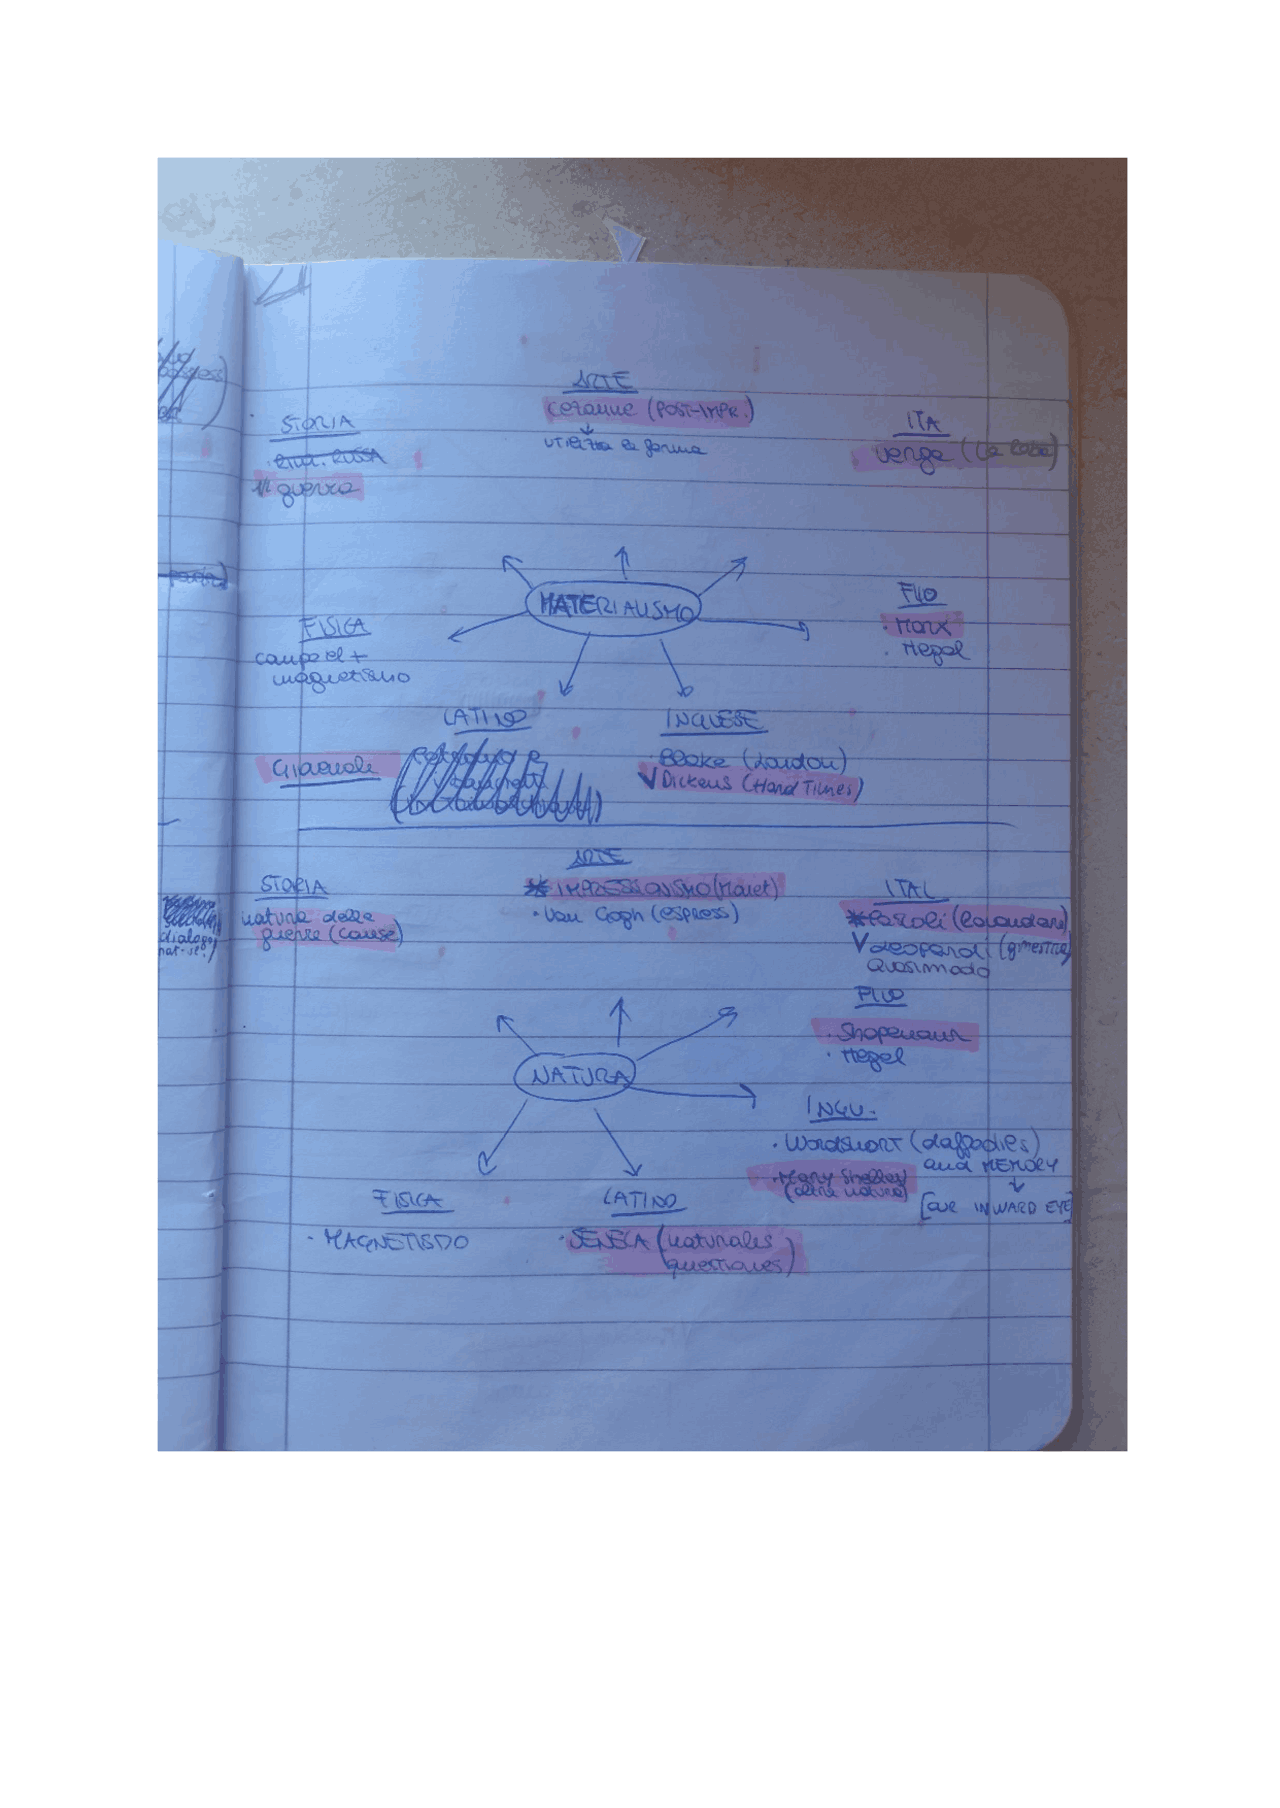 ARTE
Cezanne (POST-IMPR.)
utilizza la forma
STORIA
RIV. RUSSA
guerra
ITA
Verga (La Roba)
MATERIALISMO
FILO
· Marx
· Hegel
FISICA
campo el +
magnetismo
LATINO
Giovenale
INGLESE
· Blake (London)
Dickens (Hard Times)
ARTE
* IMPRESSIONISMO (Manet)
· Van Gogh (espress)
STORIA
natura delle
guerre (cause)
ITAL
* Pascoli (Lavandare)
V Leopardi (ginestra)
Quasimodo
FILO
· Shopenaur
· Hegel
NATURA
INGL.
· Wordshort (daffodies)
and MEMORY
· Mary Shelley
(oltre natura)
[our INWARD EYE]
FISICA
· MAGNETISMO
LATINO
· SENECA (naturales
questiones)
dialogo
nat-